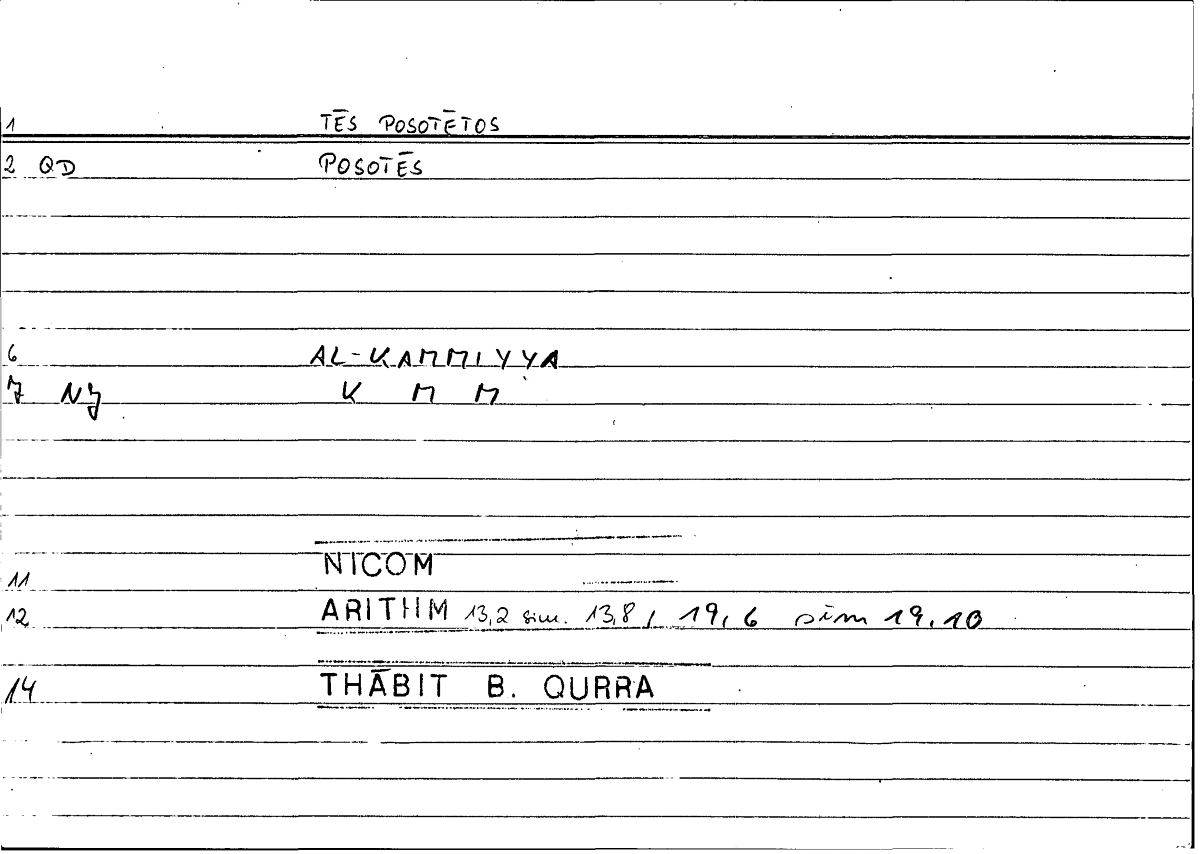 1 TĒS POSOTĒTOS
2 QD POSOTĒS
6 AL-KAMMIYYA
7 NJ K M M
11 NICOM
12 ARITHM 13,2 sim. 13,8 / 19,6 sim 19.10
14 THĀBIT B. QURRA